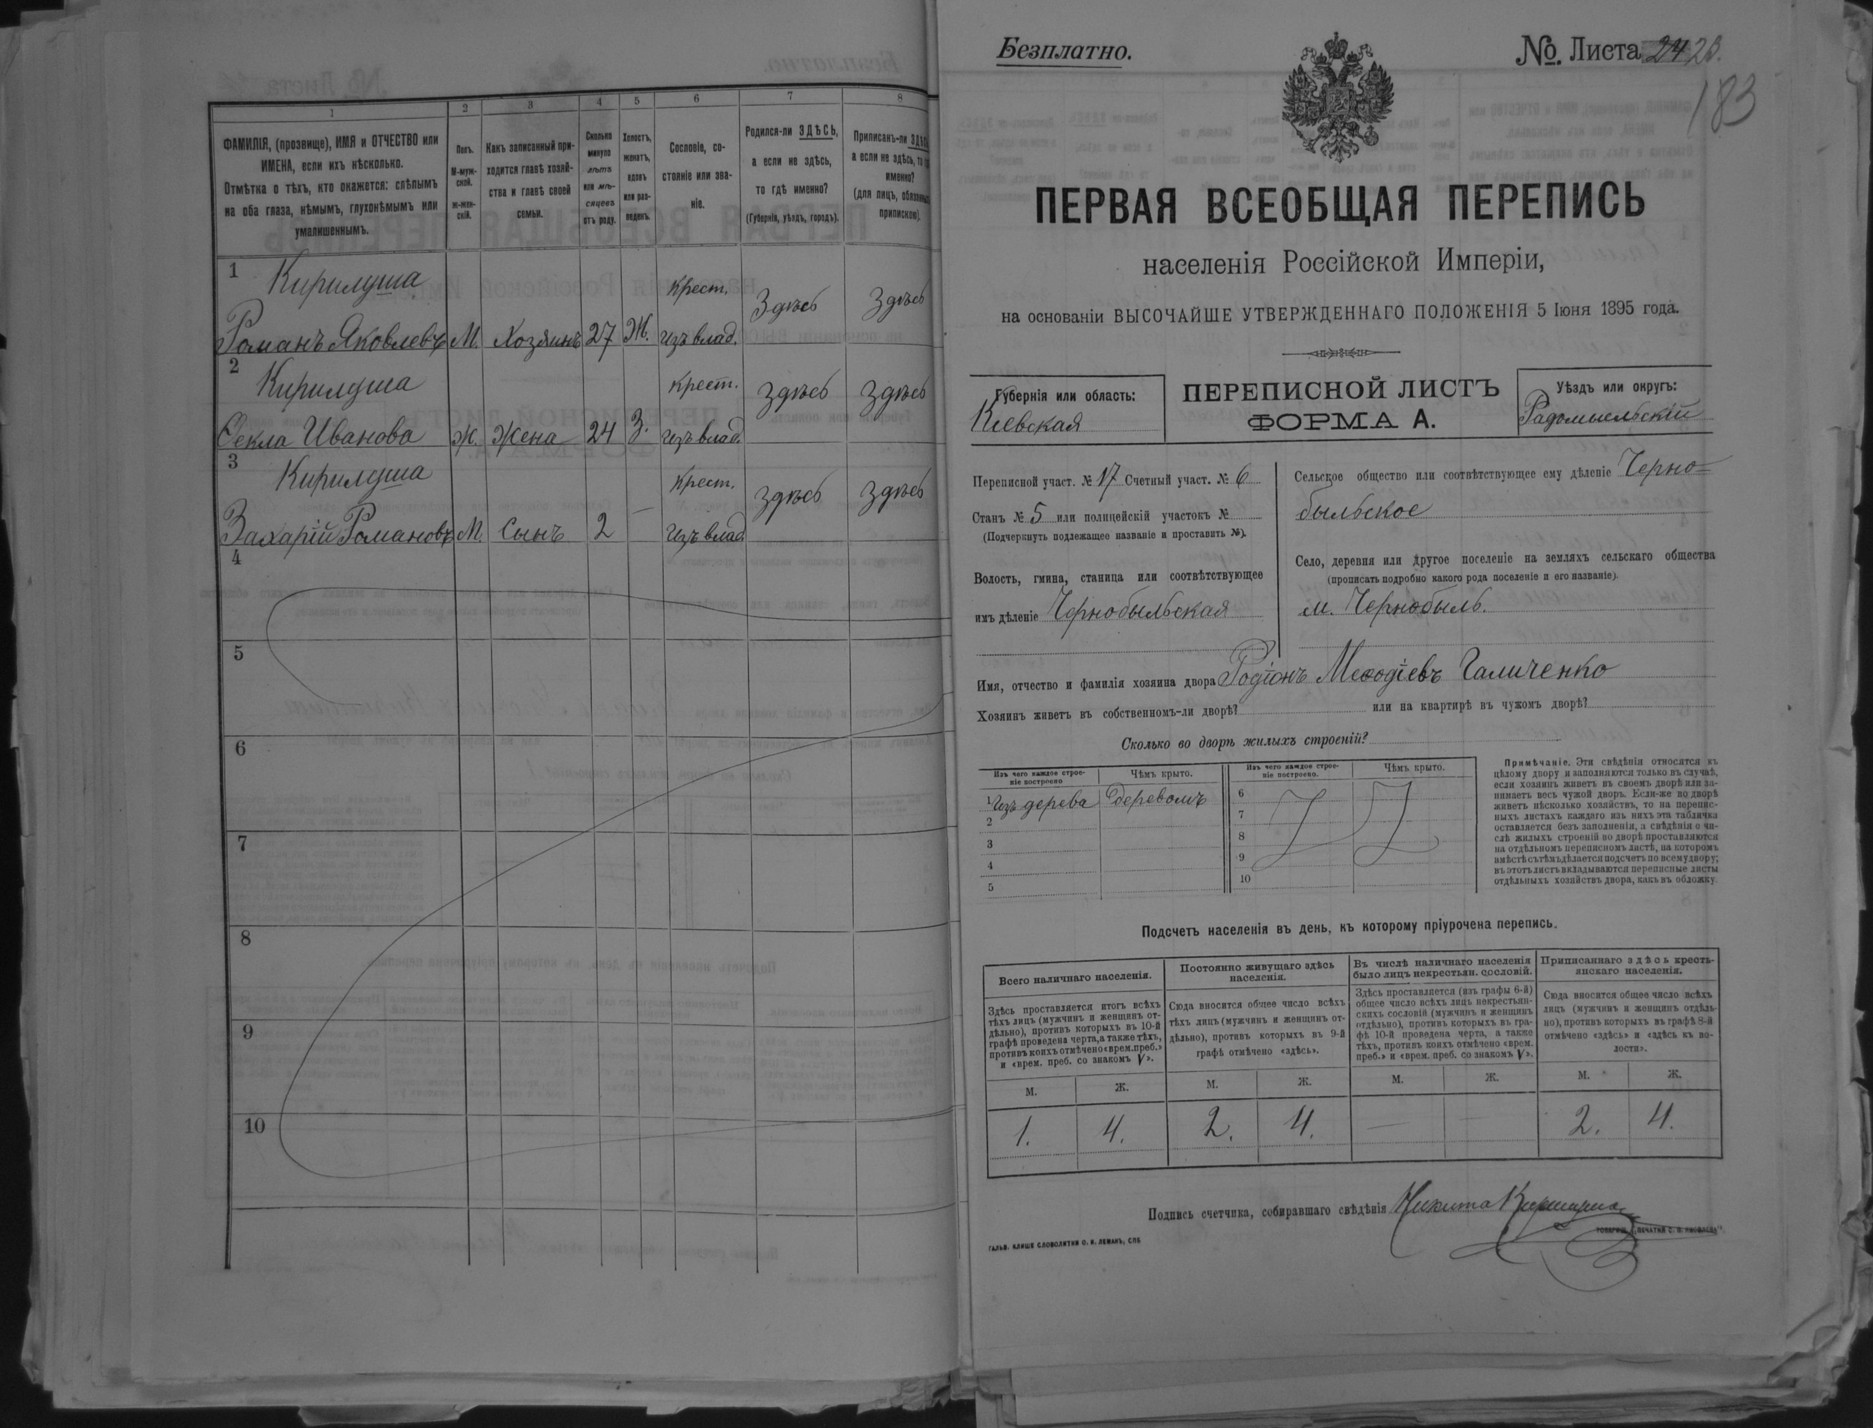 1
2
3
4
5
6
7
8
ФАМИЛІЯ, (прозвище), ИМЯ и ОТЧЕСТВО или
ИМЕНА, если ихъ нѣсколько.
Отмѣтка о тѣхъ, кто окажется: слѣпымъ
на оба глаза, нѣмымъ, глухонѣмымъ или
умалишеннымъ.
Полъ.
М-муж-
ской.
Ж-жен-
скій.
Какъ записанный при-
ходится главѣ хозяй-
ства и главѣ своей
семьи.
Сколько
минуло
лѣтъ
или мѣ-
сяцевъ
отъ роду.
Холостъ,
женатъ,
вдовъ
или раз-
веденъ.
Сословіе, со-
стояніе или зва-
ніе.
Родился-ли ЗДѢСЬ,
а если не здѣсь,
то гдѣ именно?
(Губернія, уѣздъ, городъ).
Приписанъ-ли
а если не здѣсь,
именно?
(для лицъ,
припискою).
1
Кирилуша
Романъ Яковлевъ М. Хозяинъ 27 Ж. Крест. изъ влад. Здѣсь Здѣсь
2
Кирилуша
Ѳекла Иванова Ж. Жена 24 З. Крест. изъ влад. Здѣсь Здѣсь
3
Кирилуша
Захарій Романовъ М. Сынъ 2 — Крест. изъ влад. Здѣсь Здѣсь
4
5
6
7
8
9
10
Безплатно.
№ Листа 24 23.
183
ПЕРВАЯ ВСЕОБЩАЯ ПЕРЕПИСЬ
населенія Россійской Имперіи,
на основаніи ВЫСОЧАЙШЕ УТВЕРЖДЕННАГО ПОЛОЖЕНІЯ 5 Іюня 1895 года.
Губернія или область:
Кіевская
ПЕРЕПИСНОЙ ЛИСТЪ
ФОРМА А.
Уѣздъ или округъ:
Радомысльскій
Переписной участ. № 17 Счетный участ. № 6
Станъ № 5 или полицейскій участокъ №
(Подчеркнуть подлежащее названіе и проставить №).
Волость, гмина, станица или соотвѣтствующее
имъ дѣленіе Чернобыльская
Сельское общество или соотвѣтствующее ему дѣленіе Черно=
быльское
Село, деревня или другое поселеніе на земляхъ сельскаго общества
(прописать подробно какого рода поселеніе и его названіе)
м. Чернобыль.
Имя, отчество и фамилія хозяина двора Родіонъ Меѳодіевъ Галиченко
Хозяинъ живетъ въ собственномъ-ли дворѣ? или на квартирѣ въ чужомъ дворѣ?
Сколько во дворѣ жилыхъ строеній?
Изъ чего каждое строе-
ніе построено
Чѣмъ крыто.
Изъ чего каждое строе-
ніе построено.
Чѣмъ крыто.
1 Изъ дерева деревомъ
2
3
4
5
6
7
8
9
10
Примѣчаніе. Эти свѣдѣнія относятся къ
цѣлому двору и заполняются только въ случаѣ,
если хозяинъ живетъ въ своемъ дворѣ или за-
нимаетъ весь чужой дворъ. Если-же во дворѣ
живетъ нѣсколько хозяйствъ, то на перепис-
ныхъ листахъ каждаго изъ нихъ эта табличка
оставляется безъ заполненія, а свѣдѣнія о чи-
слѣ жилыхъ строеній во дворѣ проставляются
на отдѣльномъ переписномъ листѣ, на которомъ
вмѣстѣ съ тѣмъ дѣлается подсчетъ по всему двору;
въ этотъ листъ вкладываются переписные листы
отдѣльныхъ хозяйствъ двора, какъ въ обложку.
Подсчетъ населенія въ день, къ которому пріурочена перепись.
Всего наличнаго населенія.
Здѣсь проставляется итогъ всѣхъ
тѣхъ лицъ (мужчинъ и женщинъ от-
дѣльно), противъ которыхъ въ 10-й
графѣ проведена черта, а также тѣхъ,
противъ коихъ отмѣчено «врем. преб.»
и «врем. преб. со знакомъ V».
Постоянно живущаго здѣсь
населенія.
Сюда вносится общее число всѣхъ
тѣхъ лицъ (мужчинъ и женщинъ от-
дѣльно), противъ которыхъ въ 9-й
графѣ отмѣчено «здѣсь».
Въ числѣ наличнаго населенія
было лицъ некрестьян. сословій.
Здѣсь проставляется (изъ графы 6-й)
общее число всѣхъ лицъ некрестьян-
скихъ сословій (мужчинъ и женщинъ
отдѣльно), противъ которыхъ въ гра-
фѣ 10-й проведена черта, а также
тѣхъ, противъ коихъ отмѣчено «врем.
преб.» и «врем. преб. со знакомъ V».
Приписаннаго здѣсь кресть-
янскаго населенія.
Сюда вносится общее число всѣхъ
лицъ (мужчинъ и женщинъ отдѣль-
но), противъ которыхъ въ графѣ 8-й
отмѣчено «здѣсь» и «здѣсь къ во-
лости».
М. Ж. М. Ж. М. Ж. М. Ж.
1. 4. 2. 4. — — 2. 4.
Подпись счетчика, собиравшаго свѣдѣнія Никита
ГАЛЬВ. КЛИШЕ СЛОВОЛИТНИ О. И. ЛЕМАНЪ, СПБ